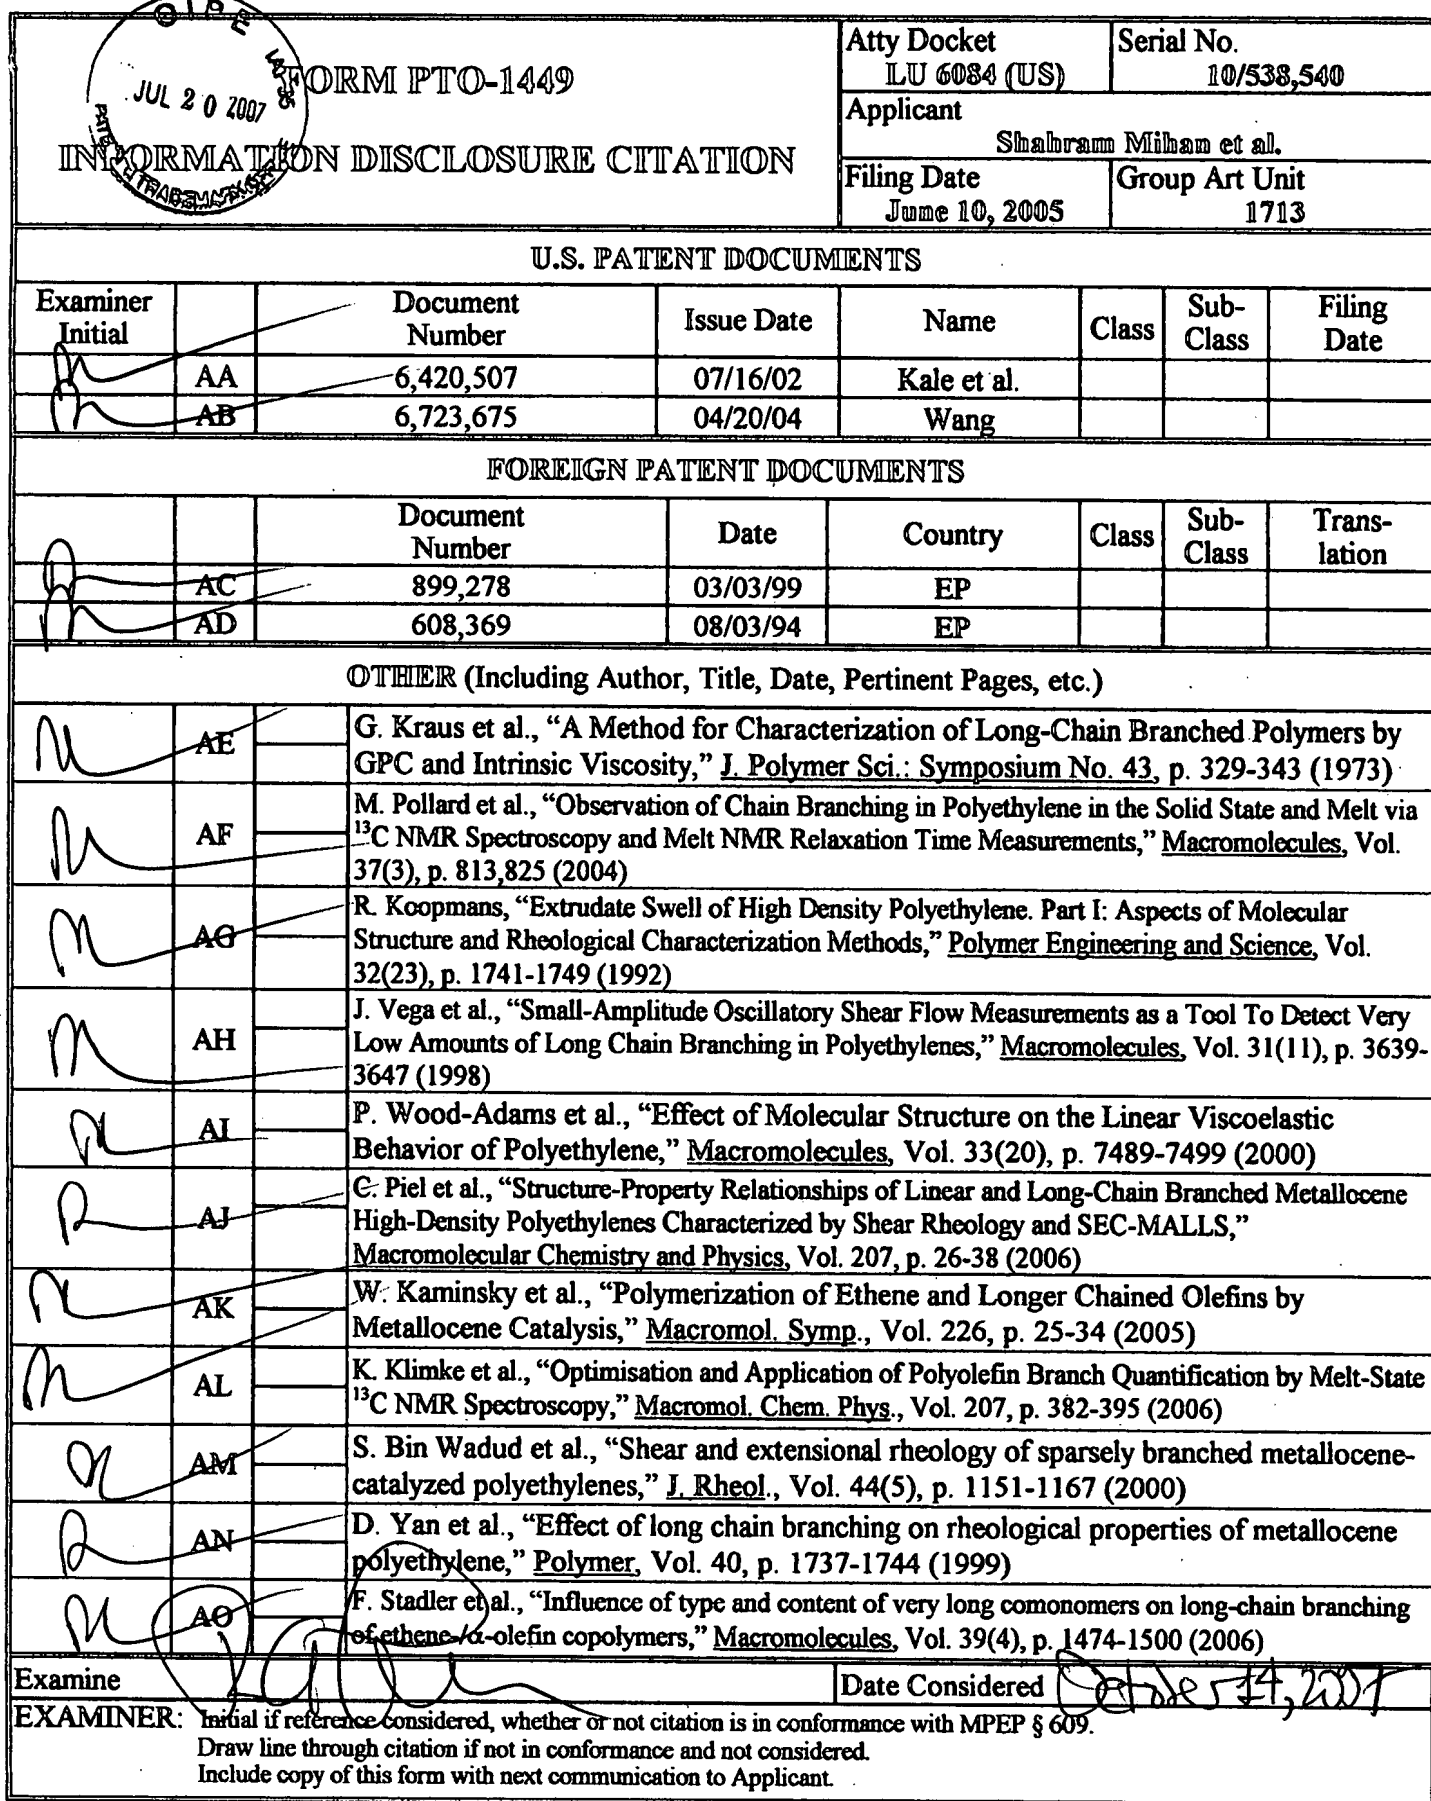 OIPE IAP35
JUL 20 2007
PATENT & TRADEMARK OFFICE
FORM PTO-1449
INFORMATION DISCLOSURE CITATION
Atty Docket
LU 6084 (US)
Serial No.
10/538,540
Applicant
Shahram Mihan et al.
Filing Date
June 10, 2005
Group Art Unit
1713
U.S. PATENT DOCUMENTS
Examiner Initial Document Number Issue Date Name Class Sub-Class Filing Date
AA 6,420,507 07/16/02 Kale et al.
AB 6,723,675 04/20/04 Wang
FOREIGN PATENT DOCUMENTS
Document Number Date Country Class Sub-Class Trans-lation
AC 899,278 03/03/99 EP
AD 608,369 08/03/94 EP
OTHER (Including Author, Title, Date, Pertinent Pages, etc.)
AE G. Kraus et al., “A Method for Characterization of Long-Chain Branched Polymers by
GPC and Intrinsic Viscosity,” J. Polymer Sci.: Symposium No. 43, p. 329-343 (1973)
AF M. Pollard et al., “Observation of Chain Branching in Polyethylene in the Solid State and Melt via
¹³C NMR Spectroscopy and Melt NMR Relaxation Time Measurements,” Macromolecules, Vol.
37(3), p. 813,825 (2004)
AG R. Koopmans, “Extrudate Swell of High Density Polyethylene. Part I: Aspects of Molecular
Structure and Rheological Characterization Methods,” Polymer Engineering and Science, Vol.
32(23), p. 1741-1749 (1992)
AH J. Vega et al., “Small-Amplitude Oscillatory Shear Flow Measurements as a Tool To Detect Very
Low Amounts of Long Chain Branching in Polyethylenes,” Macromolecules, Vol. 31(11), p. 3639-
3647 (1998)
AI P. Wood-Adams et al., “Effect of Molecular Structure on the Linear Viscoelastic
Behavior of Polyethylene,” Macromolecules, Vol. 33(20), p. 7489-7499 (2000)
AJ C. Piel et al., “Structure-Property Relationships of Linear and Long-Chain Branched Metallocene
High-Density Polyethylenes Characterized by Shear Rheology and SEC-MALLS,”
Macromolecular Chemistry and Physics, Vol. 207, p. 26-38 (2006)
AK W. Kaminsky et al., “Polymerization of Ethene and Longer Chained Olefins by
Metallocene Catalysis,” Macromol. Symp., Vol. 226, p. 25-34 (2005)
AL K. Klimke et al., “Optimisation and Application of Polyolefin Branch Quantification by Melt-State
¹³C NMR Spectroscopy,” Macromol. Chem. Phys., Vol. 207, p. 382-395 (2006)
AM S. Bin Wadud et al., “Shear and extensional rheology of sparsely branched metallocene-
catalyzed polyethylenes,” J. Rheol., Vol. 44(5), p. 1151-1167 (2000)
AN D. Yan et al., “Effect of long chain branching on rheological properties of metallocene
polyethylene,” Polymer, Vol. 40, p. 1737-1744 (1999)
AO F. Stadler et al., “Influence of type and content of very long comonomers on long-chain branching
of ethene-/α-olefin copolymers,” Macromolecules, Vol. 39(4), p. 1474-1500 (2006)
Examine
Date Considered October 14, 2007
EXAMINER: Initial if reference considered, whether or not citation is in conformance with MPEP § 609.
Draw line through citation if not in conformance and not considered.
Include copy of this form with next communication to Applicant.